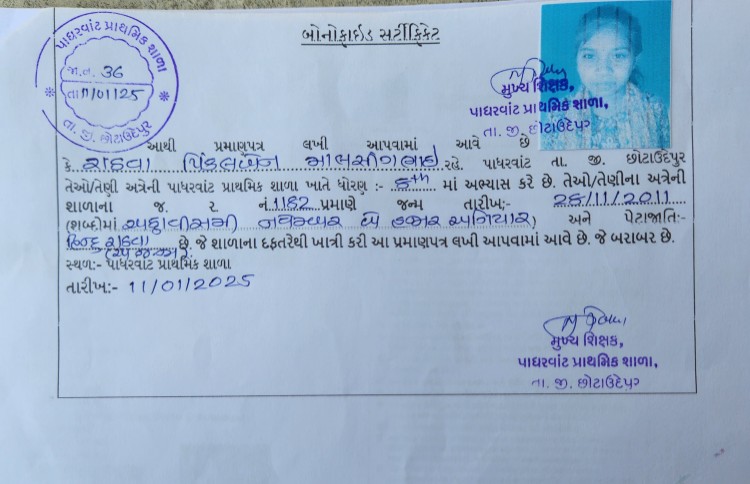 બોનોફાઇડ સર્ટીફિકેટ
પાધરવાંટ પ્રાથમિક શાળા
જા.નં. 36
તા 11/01/25
તા. જી. છોટાઉદેપુર
મુખ્ય શિક્ષક,
પાધરવાંટ પ્રાથમિક શાળા,
તા. જી. છોટાઉદેપુર
આથી પ્રમાણપત્ર લખી આપવામાં આવે છે
કે રાઠવા પિંકલબેન માલસીંગભાઇ રહે. પાધરવાંટ તા. જી. છોટાઉદેપુર
તેઓ/તેણી અત્રેની પાધરવાંટ પ્રાથમિક શાળા ખાતે ધોરણ :- 8th માં અભ્યાસ કરે છે. તેઓ/તેણીના અત્રેની
શાળાના જ. ર નં. 1182 પ્રમાણે જન્મ તારીખ:- 28/11/2011
(શબ્દોમાં અઠ્ઠાવીસમી નવેમ્બર બે હજાર અગિયાર) અને પેટાજાતિ:-
હિન્દુ રાઠવા છે. જે શાળાના દફતરેથી ખાત્રી કરી આ પ્રમાણપત્ર લખી આપવામાં આવે છે. જે બરાબર છે.
સ્થળ:- પાધરવાંટ પ્રાથમિક શાળા
તારીખ:- 11/01/2025
મુખ્ય શિક્ષક,
પાધરવાંટ પ્રાથમિક શાળા,
તા. જી. છોટાઉદેપુર